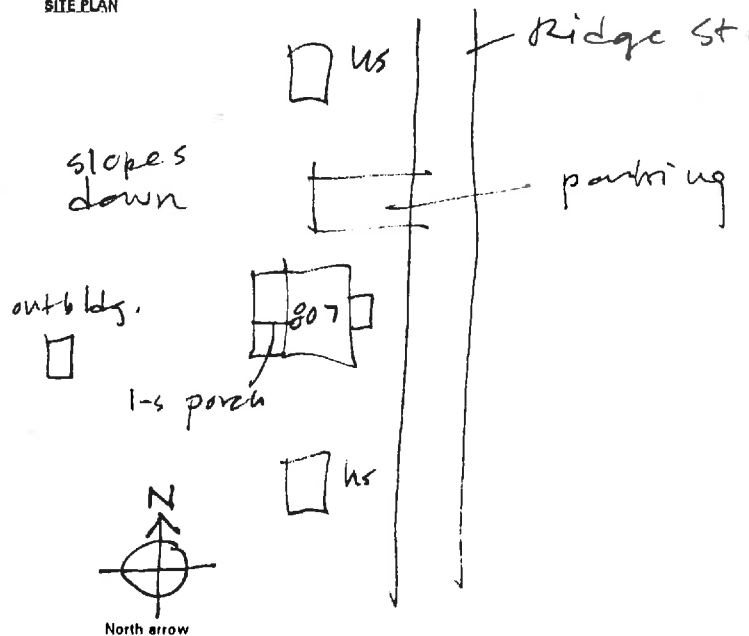 SITE PLAN
Ridge St
hs
slopes
down
parking
outbldg.
807
1-s porch
hs
N
North arrow